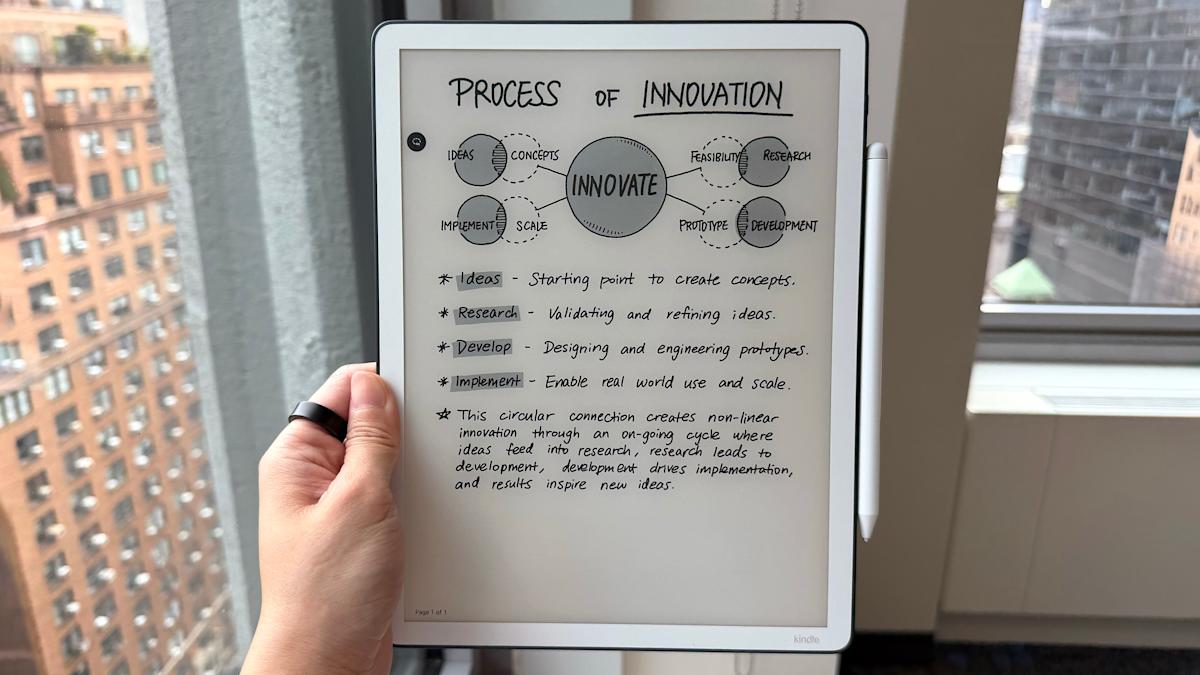 PROCESS OF INNOVATION
IDEAS CONCEPTS
FEASIBILITY RESEARCH
INNOVATE
IMPLEMENT SCALE
PROTOTYPE DEVELOPMENT
* Ideas - Starting point to create concepts.
* Research - Validating and refining ideas.
* Develop - Designing and engineering prototypes.
* Implement - Enable real world use and scale.
☆ This circular connection creates non-linear
innovation through an on-going cycle where
ideas feed into research, research leads to
development, development drives implementation,
and results inspire new ideas.
Page 1 of 1
kindle